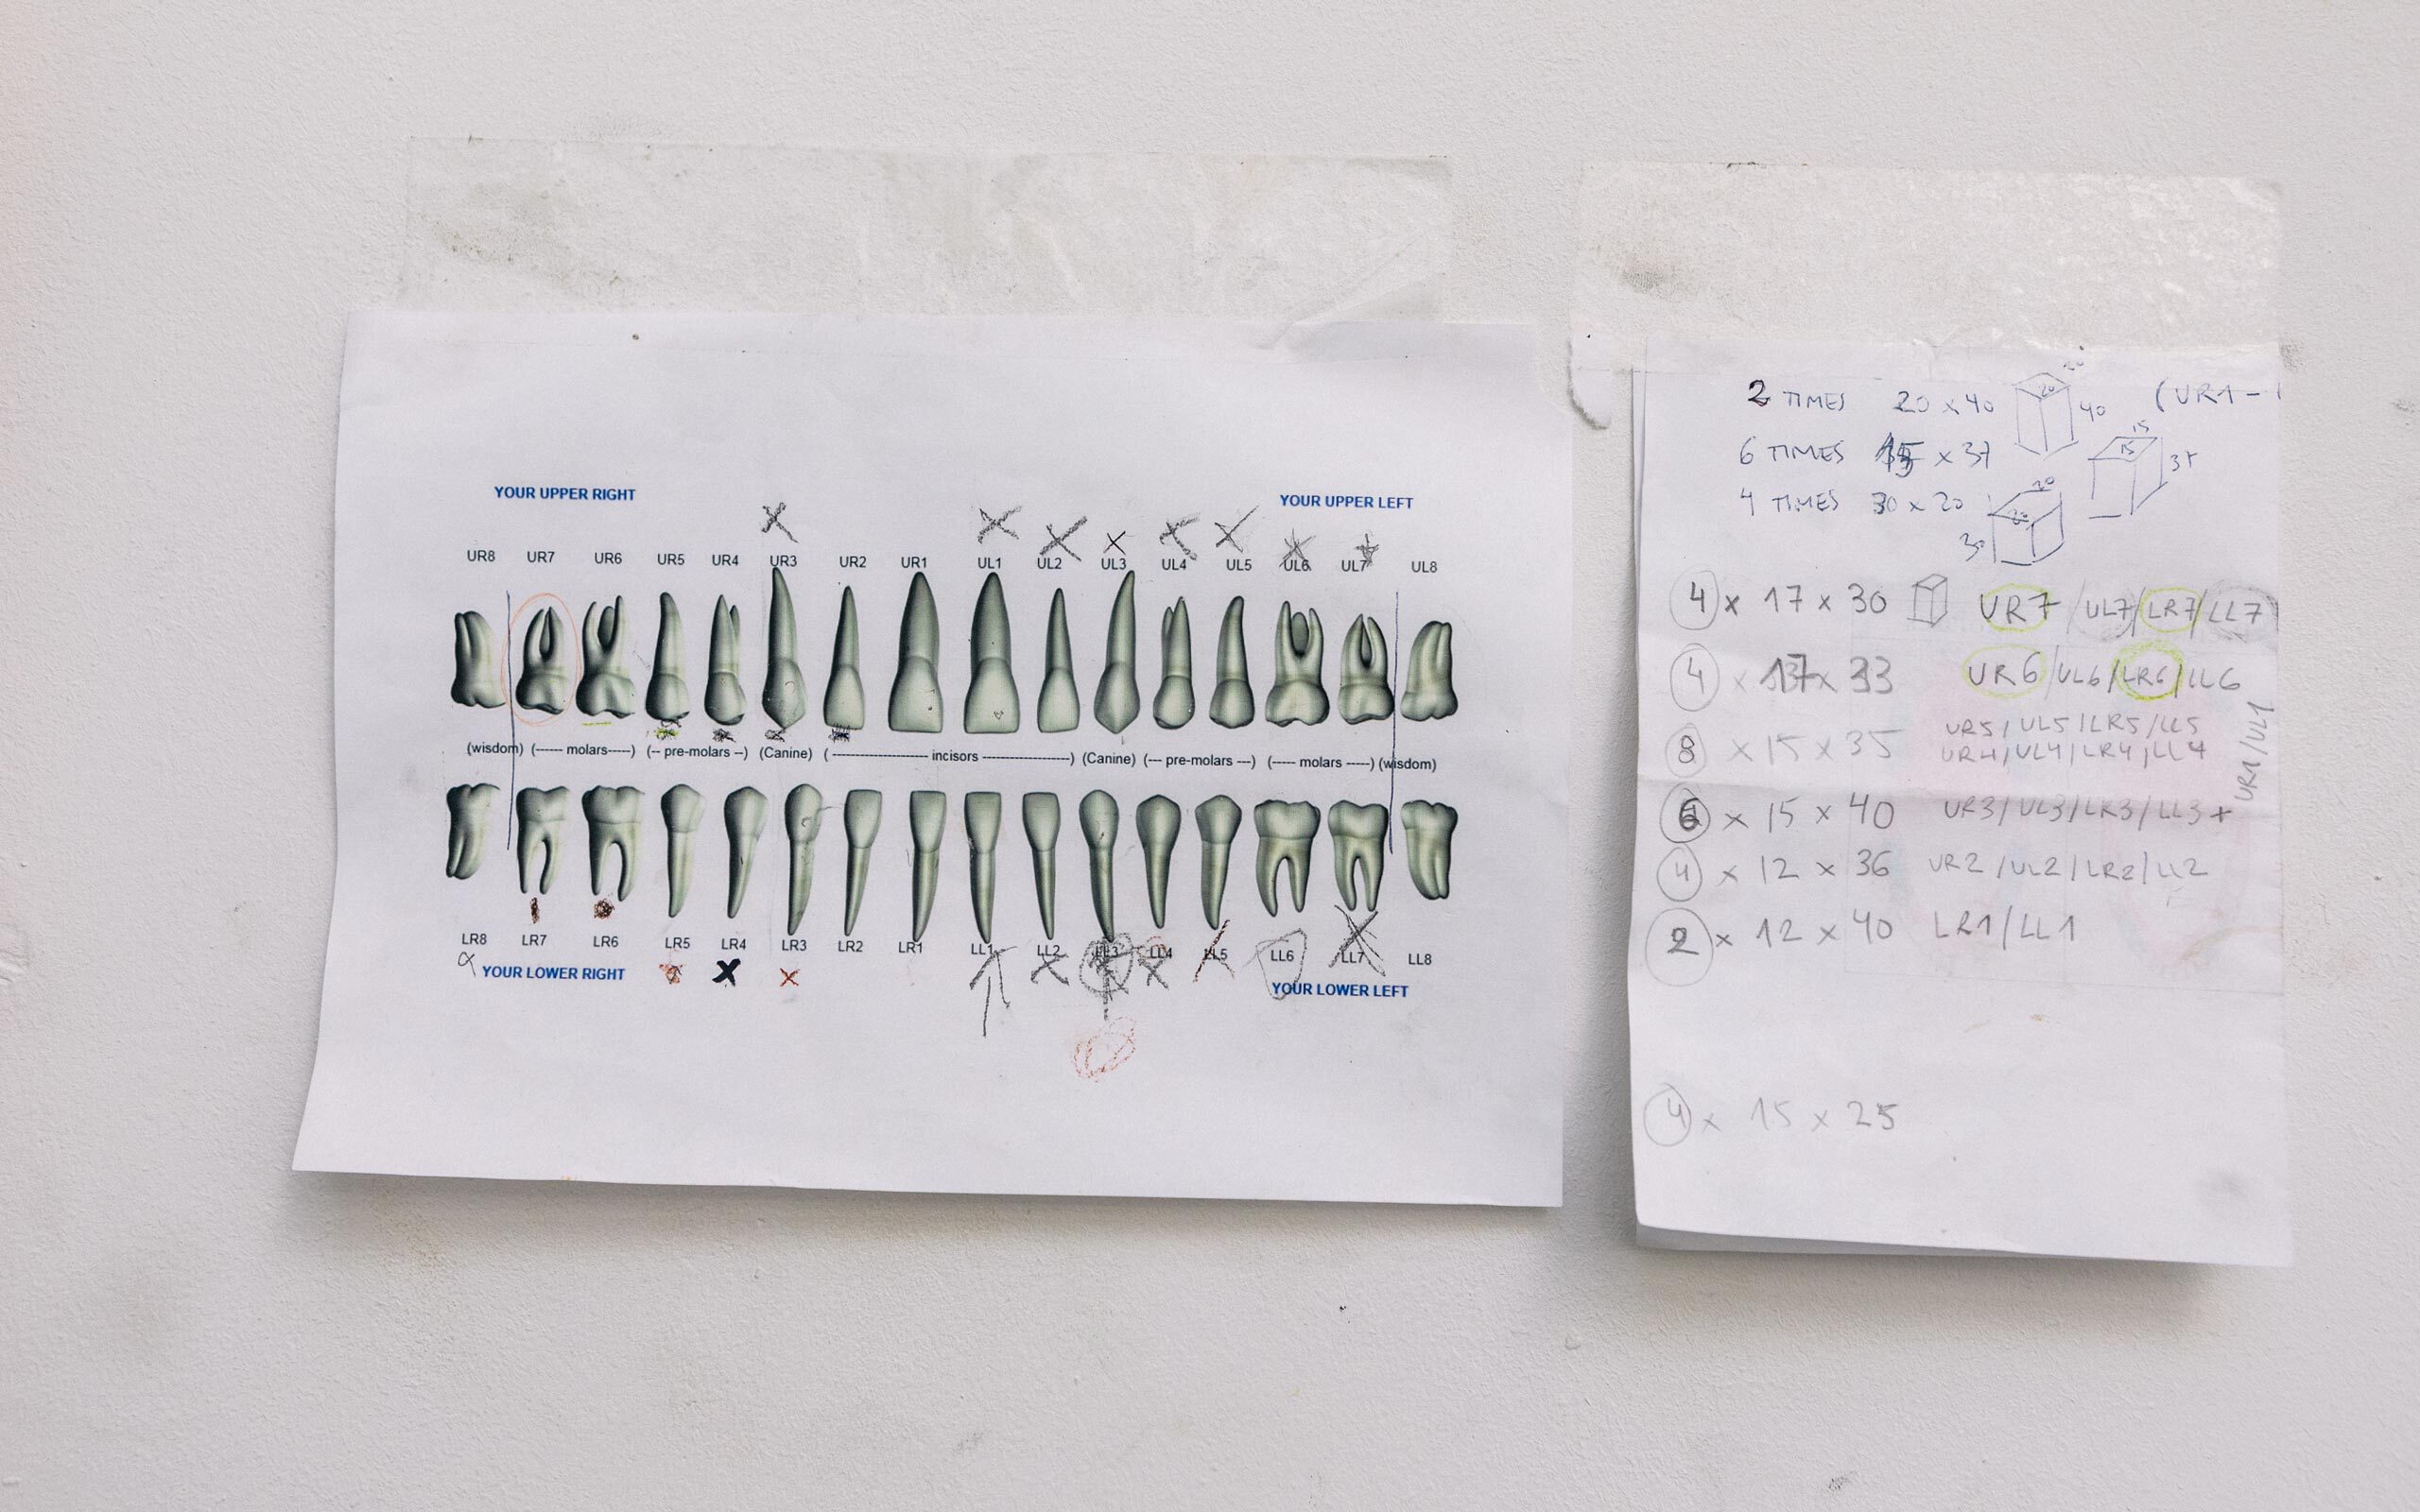 YOUR UPPER RIGHT YOUR UPPER LEFT
UR8 UR7 UR6 UR5 UR4 UR3 UR2 UR1 UL1 UL2 UL3 UL4 UL5 UL6 UL7 UL8
(wisdom) (------ molars-----) (-- pre-molars --) (Canine) ( -------------------- incisors --------------------) (Canine) (--- pre-molars ---) (----- molars -----) (wisdom)
LR8 LR7 LR6 LR5 LR4 LR3 LR2 LR1 LL1 LL2 LL3 LL4 LL5 LL6 LL7 LL8
YOUR LOWER RIGHT YOUR LOWER LEFT
2 TIMES 20 x 40 20 40 (UR1 -
6 TIMES 15 x 37 15 15
4 TIMES 30 x 20 20 20 30
4 x 17 x 30 UR7 / UL7 / LR7 / LL7
4 x 17 x 33 UR6 / UL6 / LR6 / LL6
8 x 15 x 35 UR5 / UL5 / LR5 / LL5
UR4 / UL4 / LR4 / LL4
6 x 15 x 40 UR3 / UL3 / LR3 / LL3 + UR1 / UL1
4 x 12 x 36 UR2 / UL2 / LR2 / LL2
2 x 12 x 40 LR1 / LL1
4 x 15 x 25